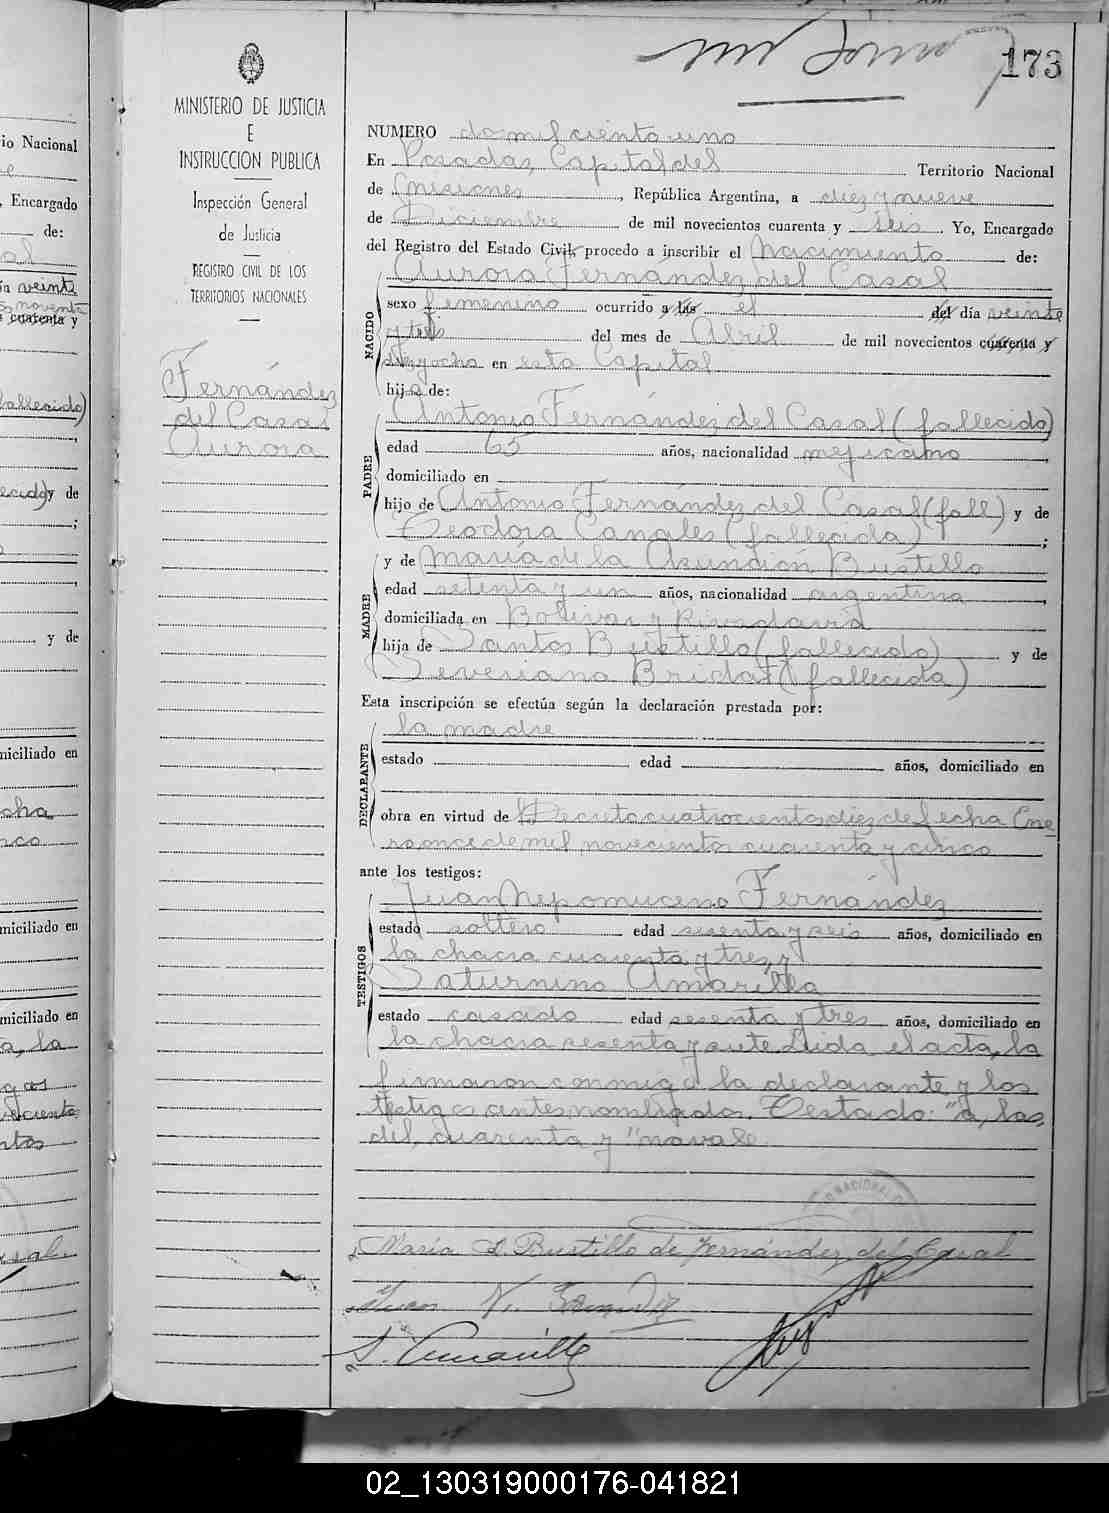 173
MINISTERIO DE JUSTICIA
E
INSTRUCCION PUBLICA
Inspección General
de Justicia
REGISTRO CIVIL DE LOS
TERRITORIOS NACIONALES
Fernández
del Casal
Aurora
NUMERO dos mil ciento uno
En Posadas, Capital del Territorio Nacional
de Misiones, República Argentina, a diez y nueve
de Diciembre de mil novecientos cuarenta y seis. Yo, Encargado
del Registro del Estado Civil, procedo a inscribir el Nacimiento de:
Aurora Fernández del Casal
NACIDO
sexo femenino ocurrido a las el del día veinte
y tres del mes de Abril de mil novecientos cuarenta y
diez y ocho en esta Capital
hija de:
Antonio Fernández del Casal (fallecido)
PADRE
edad 65 años, nacionalidad mejicano
domiciliado en
hijo de Antonio Fernández del Casal (fall) y de
Teodora Canales (fallecida);
y de María de la Asunción Bustillo
MADRE
edad setenta y un años, nacionalidad argentina
domiciliada en Bolivar y Rivadavia
hija de Santos Bustillo (fallecido) y de
Severiana Bridat (fallecida)
Esta inscripción se efectúa según la declaración prestada por:
la madre
DECLARANTE
estado edad años, domiciliado en
obra en virtud de Decreto cuatrocientos diez de fecha Ene
ro once de mil novecientos cuarenta y cinco
ante los testigos:
Juan Nepomuceno Fernández
TESTIGOS
estado soltero edad sesenta y seis años, domiciliado en
la chacra cuarenta y tres y
Saturnino Amarilla
estado casado edad sesenta y tres años, domiciliado en
la chacra sesenta y siete. Leida el acta, la
firmaron conmigo la declarante y los
testigos antes nombrados. Testado: "a, las,
del, cuarenta y" no vale.
María A. Bustillo de Fernández del Casal
Juan N. Fernández
S. Amarilla
io Nacional
, Encargado
de:
al
ia veinte
noventa
cuarenta y
fallecido)
y de
;
y de
miciliado en
cha
nco
miciliado en
miciliado en
a, la
NACIONAL
02_130319000176-041821